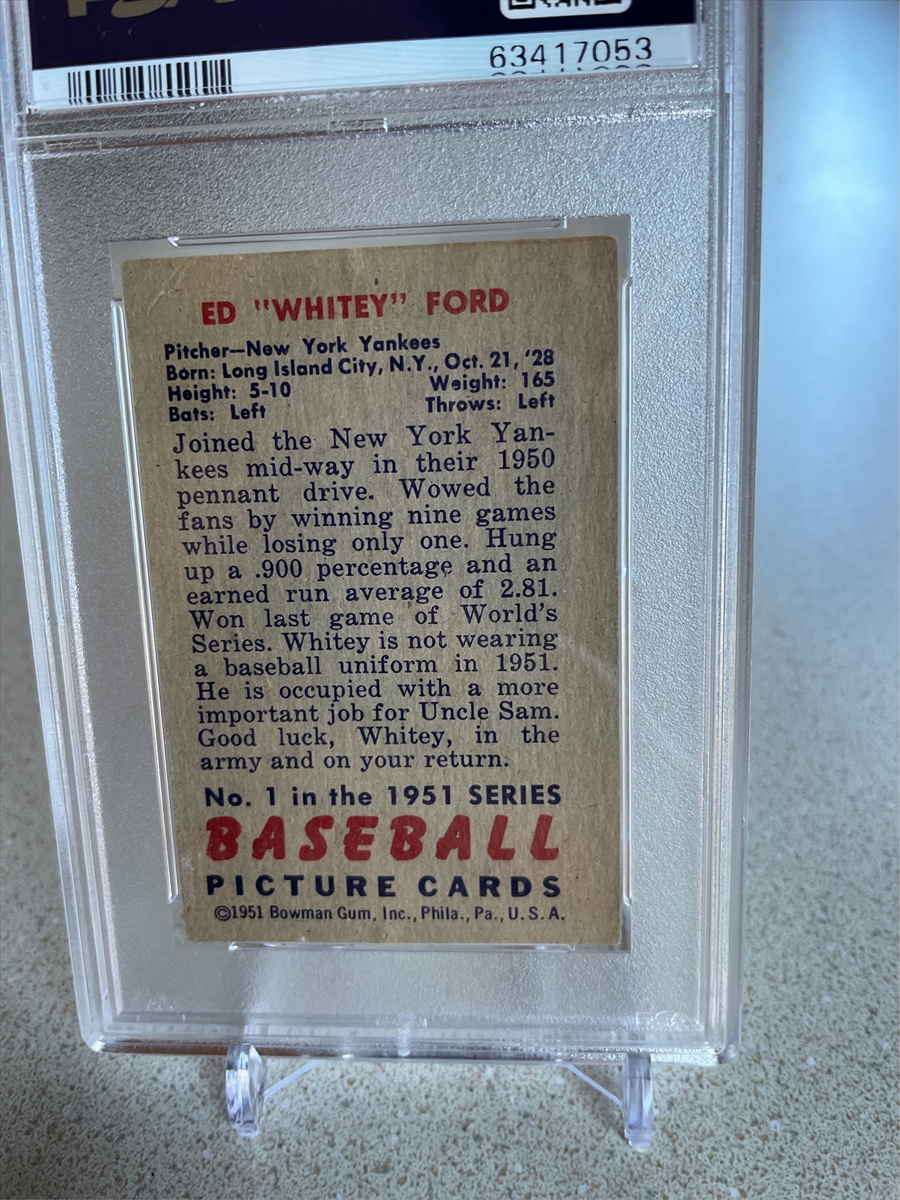 63417053
ED "WHITEY" FORD
Pitcher—New York Yankees
Born: Long Island City, N.Y., Oct. 21, '28
Height: 5-10 Weight: 165
Bats: Left Throws: Left
Joined the New York Yan-
kees mid-way in their 1950
pennant drive. Wowed the
fans by winning nine games
while losing only one. Hung
up a .900 percentage and an
earned run average of 2.81.
Won last game of World's
Series. Whitey is not wearing
a baseball uniform in 1951.
He is occupied with a more
important job for Uncle Sam.
Good luck, Whitey, in the
army and on your return.
No. 1 in the 1951 SERIES
BASEBALL
PICTURE CARDS
©1951 Bowman Gum, Inc., Phila., Pa., U.S.A.